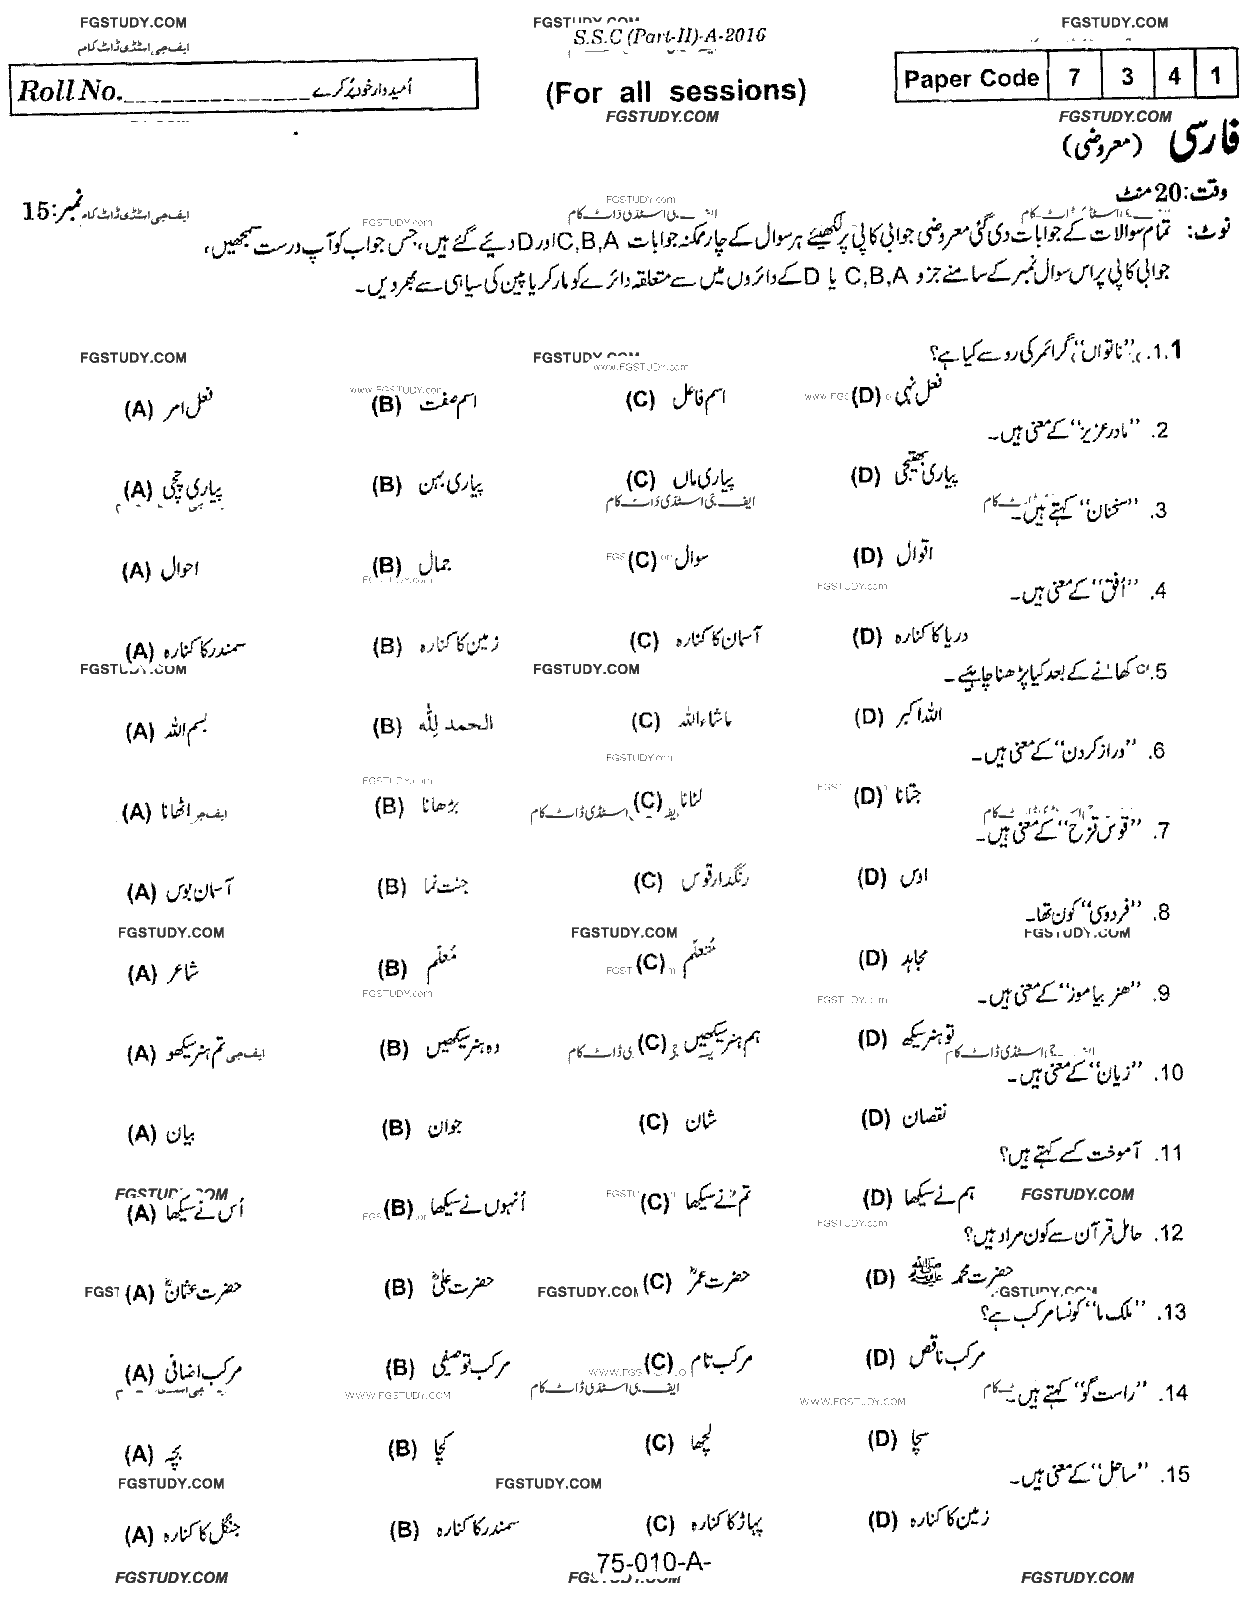 FGSTUDY.COM FGSTUDY.COM FGSTUDY.COM
ایف جی اسٹڈی ڈاٹ کام S.S.C (Part-II)-A-2016
Roll No. ________________ اُمیدوار خود پُر کرے (For all sessions) Paper Code 7 3 4 1
FGSTUDY.COM FGSTUDY.COM
فارسی (معروضی)
وقت: 20 منٹ نمبر: 15
FGSTUDY.com ایف جی اسٹڈی ڈاٹ کام
نوٹ: تمام سوالات کے جوابات دی گئی معروضی جوابی کاپی پر لکھیئے ہر سوال کے چار ممکنہ جوابات C,B,A اور D دیئے گئے ہیں، جس جواب کو آپ درست سمجھیں،
جوابی کاپی پر اس سوال نمبر کے سامنے جزو C,B,A یا D کے دائروں میں سے متعلقہ دائرے کو مارکر یا پین کی سیاہی سے بھر دیں۔
1.1. "ناتواں" گرائمر کی رو سے کیا ہے؟
FGSTUDY.COM FGSTUDY.COM
www.FGSTUDY.com
(A) فعل امر (B) اسم صفت (C) اسم فاعل (D) فعل نہی
2. "مادر عزیز" کے معنی ہیں۔
(A) پیاری چچی (B) پیاری بہن (C) پیاری ماں (D) پیاری بھتیجی
ایف جی اسٹڈی ڈاٹ کام
3. "سخنان" کہتے ہیں۔
(A) احوال (B) جمال (C) سوال (D) اقوال
FGSTUDY.com FGSTUDY.com
4. "اُفق" کے معنی ہیں۔
(A) سمندر کا کنارہ (B) زمین کا کنارہ (C) آسمان کا کنارہ (D) دریا کا کنارہ
FGSTUDY.COM FGSTUDY.COM
5. کھانے کے بعد کیا پڑھنا چاہیئے۔
(A) بسم اللہ (B) الحمد لِلّٰہ (C) ماشاءاللہ (D) اللہ اکبر
6. "دراز کردن" کے معنی ہیں۔
FGSTUDY.com
(A) اٹھانا (B) بڑھانا (C) لٹانا (D) جتانا
7. "قوس قزح" کے معنی ہیں۔
(A) آسمان بوس (B) جنت نما (C) رنگدار قوس (D) اوس
8. "فردوسی" کون تھا۔
FGSTUDY.COM FGSTUDY.COM FGSTUDY.COM
(A) شاعر (B) مُعلّم (C) مُتعلّم (D) مجاہد
FGSTUDY.com FGSTUDY.com
9. "ھنر بیاموز" کے معنی ہیں۔
(A) تم ہنر سیکھو (B) وہ ہنر سیکھیں (C) ہم ہنر سیکھیں (D) تو ہنر سیکھ
10. "زیان" کے معنی ہیں۔
(A) بیان (B) جوان (C) شان (D) نقصان
11. آموخت کسے کہتے ہیں؟
FGSTUDY.COM FGSTUDY.COM
(A) اُس نے سیکھا (B) اُنہوں نے سیکھا (C) تم نے سیکھا (D) ہم نے سیکھا
FGSTUDY.com
12. حامل قرآن سے کون مراد ہیں؟
(A) حضرت عثمانؓ (B) حضرت علیؓ (C) حضرت عمرؓ (D) حضرت محمد ﷺ
FGSTUDY.COM FGSTUDY.COM
13. "ملک ما" کونسا مرکب ہے؟
(A) مرکب اضافی (B) مرکب توصیفی (C) مرکب تام (D) مرکب ناقص
ایف جی اسٹڈی ڈاٹ کام
WWW.FGSTUDY.COM WWW.FGSTUDY.COM
14. "راست گو" کہتے ہیں۔
(A) بچہ (B) کچا (C) لچھا (D) سچا
FGSTUDY.COM FGSTUDY.COM
15. "ساحل" کے معنی ہیں۔
(A) جنگل کا کنارہ (B) سمندر کا کنارہ (C) پہاڑ کا کنارہ (D) زمین کا کنارہ
75-010-A-
FGSTUDY.COM FGSTUDY.COM FGSTUDY.COM